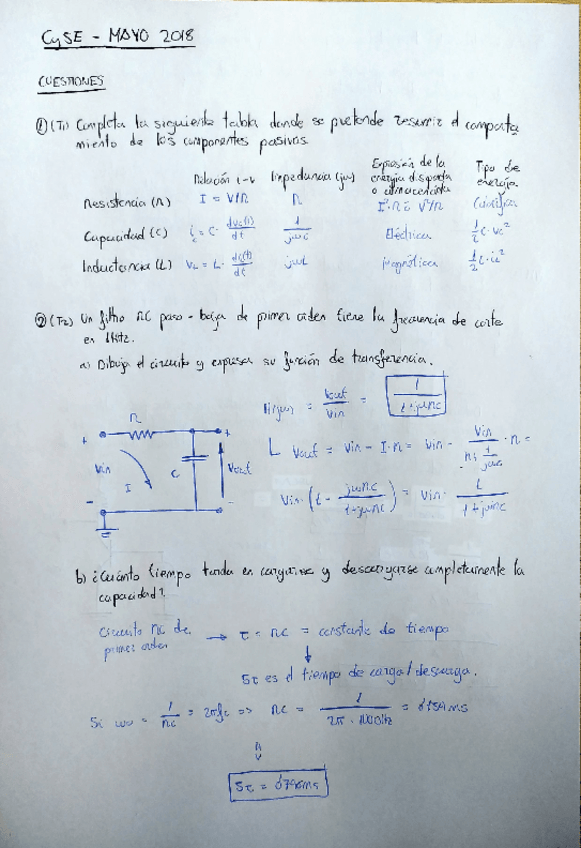 CySE - MAYO 2018
CUESTIONES
1) (T1) Completa la siguiente tabla donde se pretende resumir el comporta
miento de los componentes pasivos.
Relación i-v Impedancia (jω) Expresión de la energía disipada o almacenada Tipo de energía
Resistencia (R) I = V/R R I²·R = V²/R Calorífica
Capacidad (C) i_c = C · dv_c(t)/dt 1/jωC Eléctrica ½ C·v_c²
Inductancia (L) V_L = L · di(t)/dt jωL Magnética ½ L·i_L²
2) (T2) Un filtro RC paso-baja de primer orden tiene la frecuencia de corte
en 1kHz.
a) Dibuja el circuito y expresar su función de transferencia.
H(jω) = Vout/Vin = 1/(1+jωRC)
R
+ +
Vin I C Vout
- -
L Vout = Vin - I·R = Vin - Vin/(R+1/jωC) · R =
Vin · (1 - jωRC/(1+jωRC)) = Vin · 1/(1+jωRC)
b) ¿Cuánto tiempo tarda en cargarse y descargarse completamente la
capacidad?
Circuito RC de → τ = RC = constante de tiempo
primer orden
↓
5τ es el tiempo de carga/descarga.
Si ω₀ = 1/RC = 2πfc => RC = 1/(2π · 1000Hz) = 0'159ms
⇓
5τ = 0'796ms